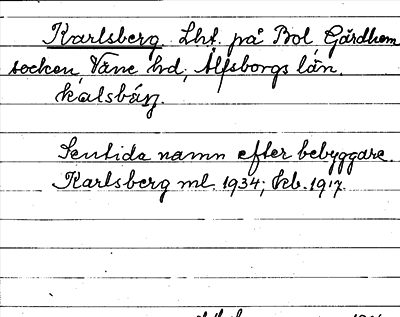 Karlsberg. Lht. på Bol, Gärdhem
socken, Väne hd, Älfsborgs län.
kalsbärj.
Sentida namn efter bebyggare.
Karlsberg ml. 1934; kb. 1917.